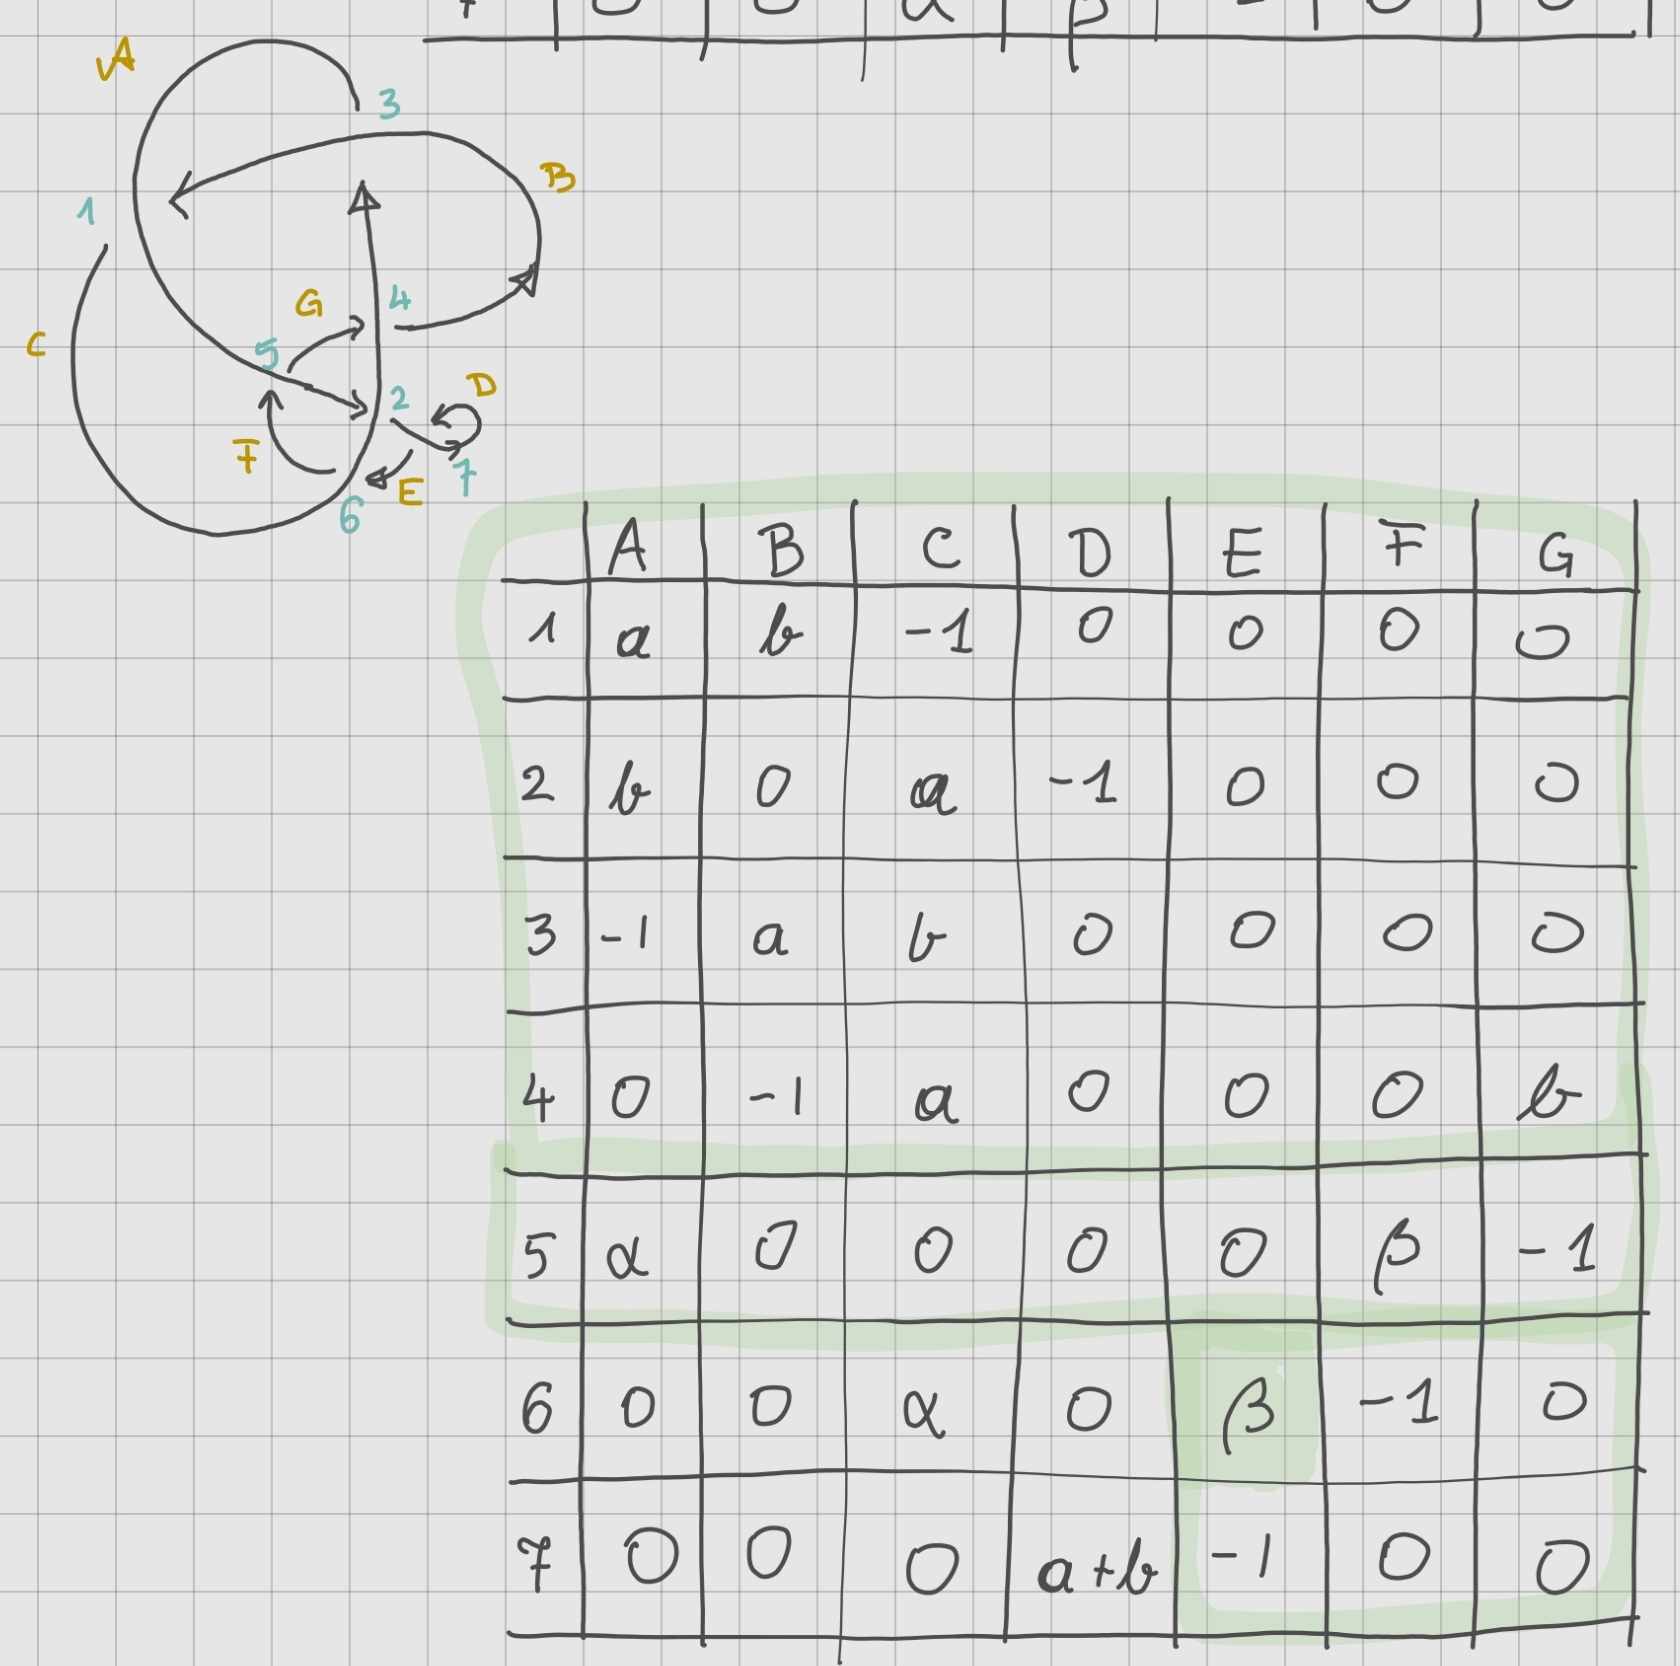 7 0 0 α β -1 0 0
A
3
B
1
G 4
C
5
D
2
F
7
E
6
A B C D E F G
1 a b -1 0 0 0 0
2 b 0 a -1 0 0 0
3 -1 a b 0 0 0 0
4 0 -1 a 0 0 0 b
5 α 0 0 0 0 β -1
6 0 0 α 0 β -1 0
7 0 0 0 a+b -1 0 0